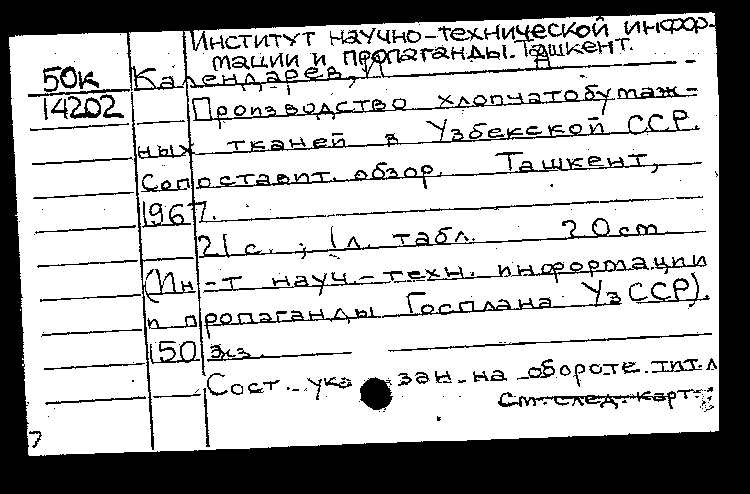 Институт научно-технической инфор-
мации и пропаганды. Ташкент.
50к Календарев, И
14202 Производство хлопчатобумаж-
ных тканей в Узбекской ССР.
Сопоставит. обзор. Ташкент,
1967.
21 с. ; 1 л. табл. 20 cm
(Ин-т науч.-техн. информации
и пропаганды Госплана УзССР).
150 экз.
Сост. указан на обороте тит. л
См. след. карт.
7